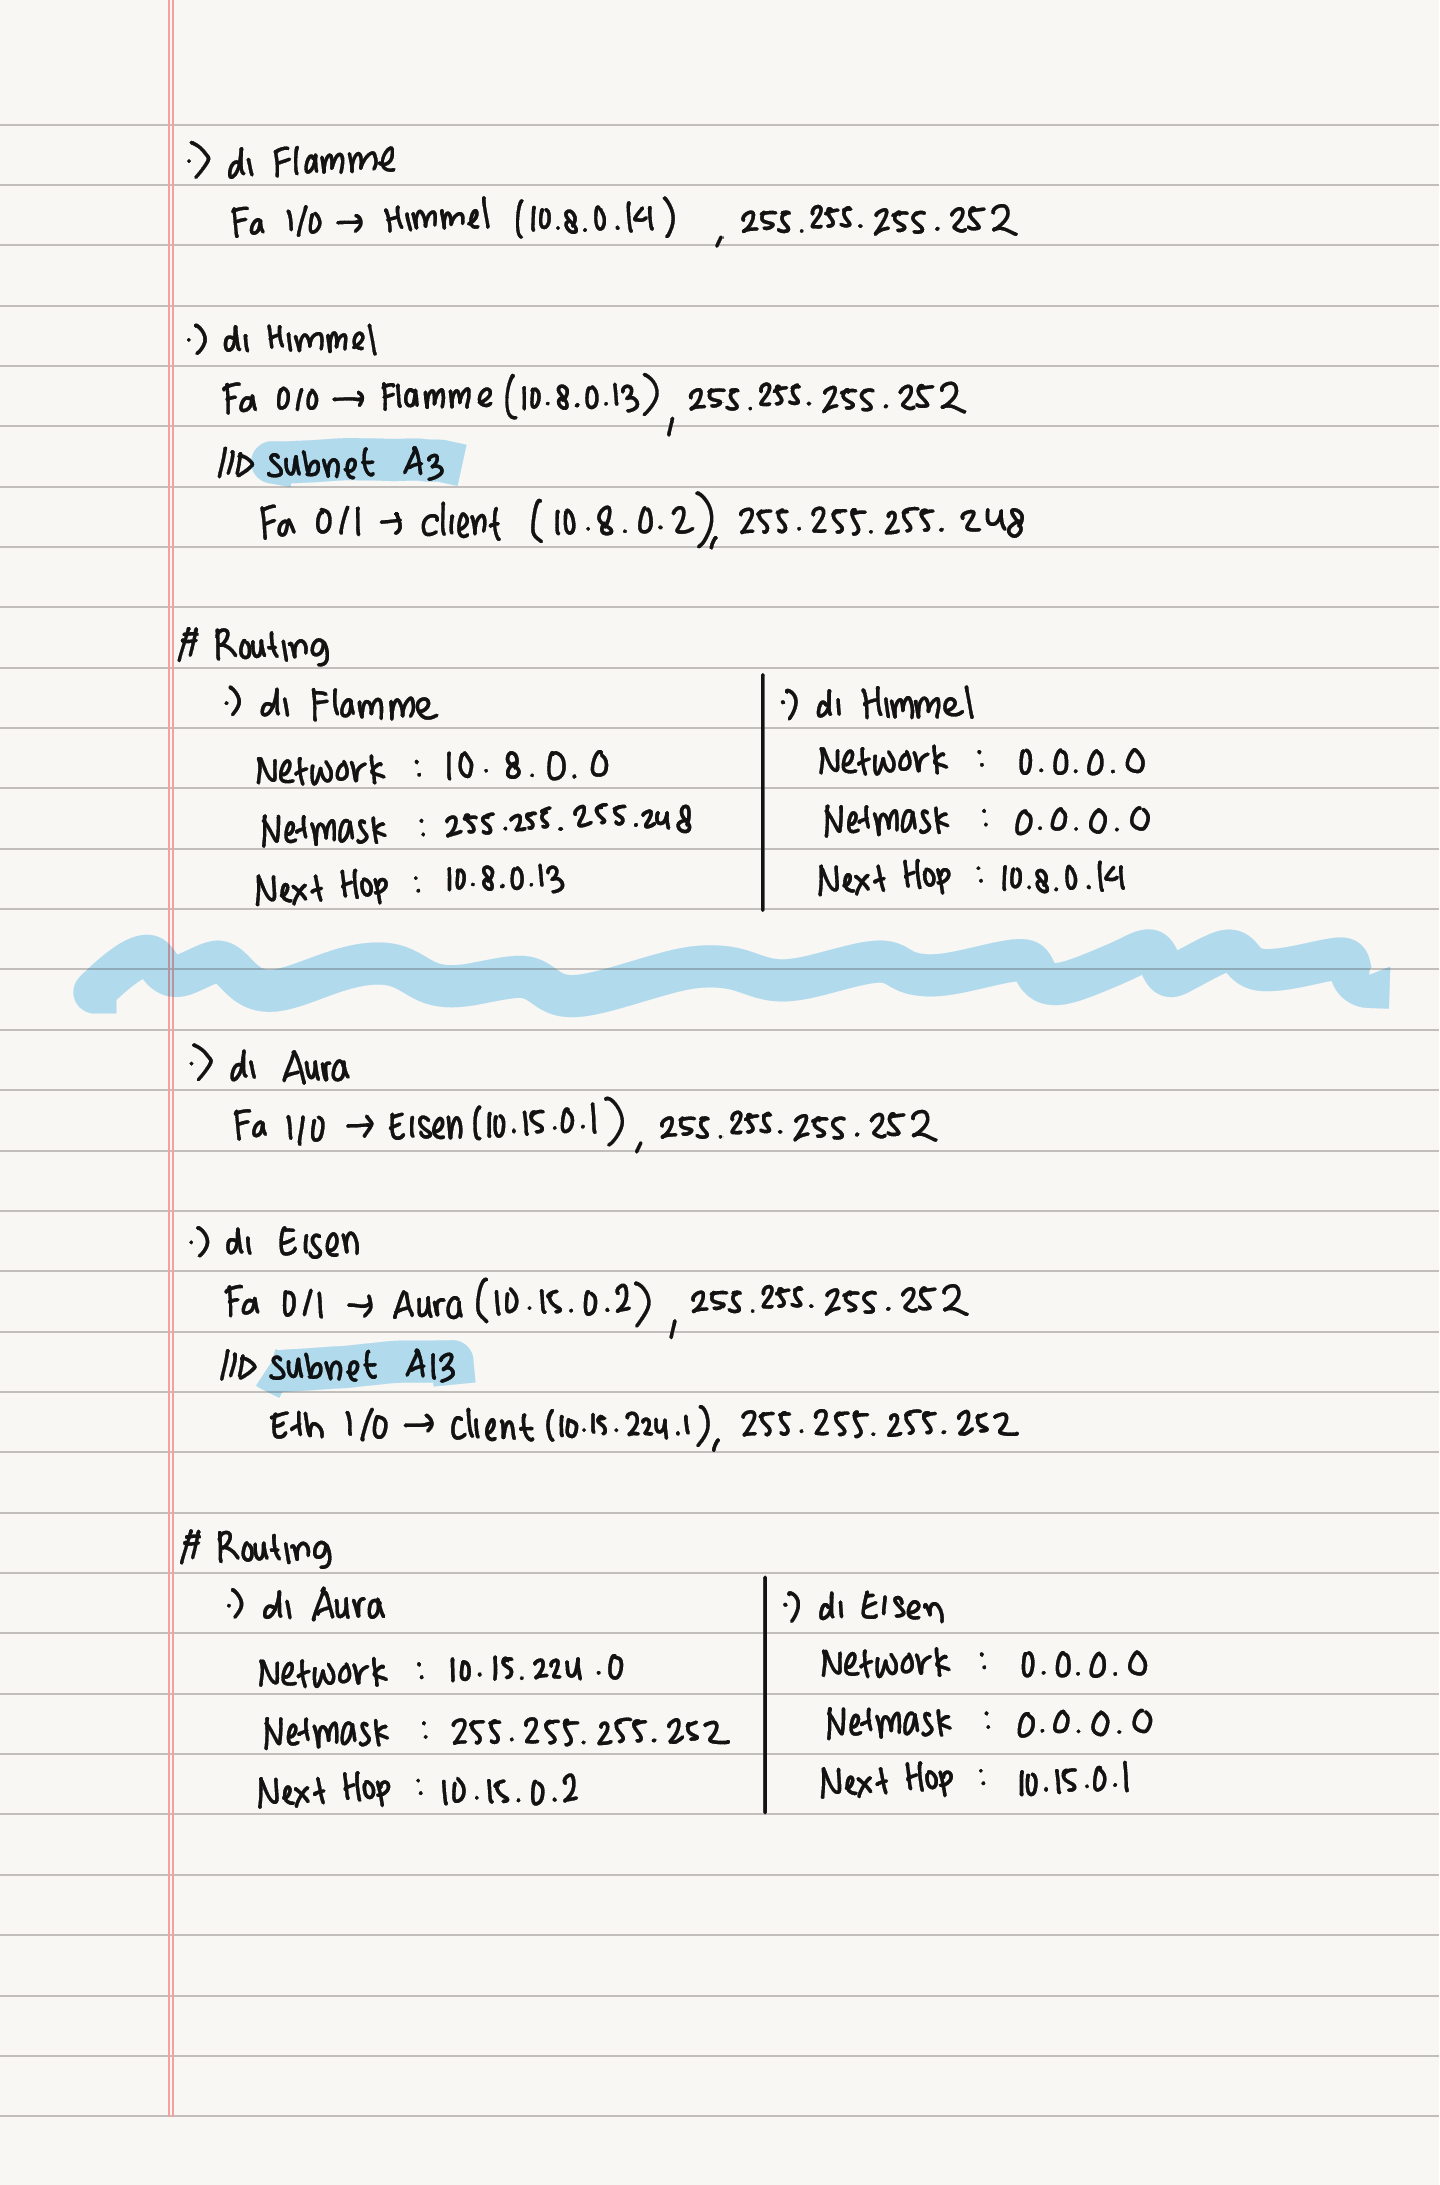 ·) di Flamme
Fa 1/0 → Himmel (10.8.0.14) , 255.255.255.252
·) di Himmel
Fa 0/0 → Flamme (10.8.0.13), 255.255.255.252
Subnet A3
Fa 0/1 → client (10.8.0.2), 255.255.255.248
# Routing
·) di Flamme
Network : 10.8.0.0
Netmask : 255.255.255.248
Next Hop : 10.8.0.13
·) di Himmel
Network : 0.0.0.0
Netmask : 0.0.0.0
Next Hop : 10.8.0.14
·) di Aura
Fa 1/0 → Eisen (10.15.0.1), 255.255.255.252
·) di Eisen
Fa 0/1 → Aura (10.15.0.2), 255.255.255.252
Subnet A13
Eth 1/0 → client (10.15.224.1), 255.255.255.252
# Routing
·) di Aura
Network : 10.15.224.0
Netmask : 255.255.255.252
Next Hop : 10.15.0.2
·) di Eisen
Network : 0.0.0.0
Netmask : 0.0.0.0
Next Hop : 10.15.0.1